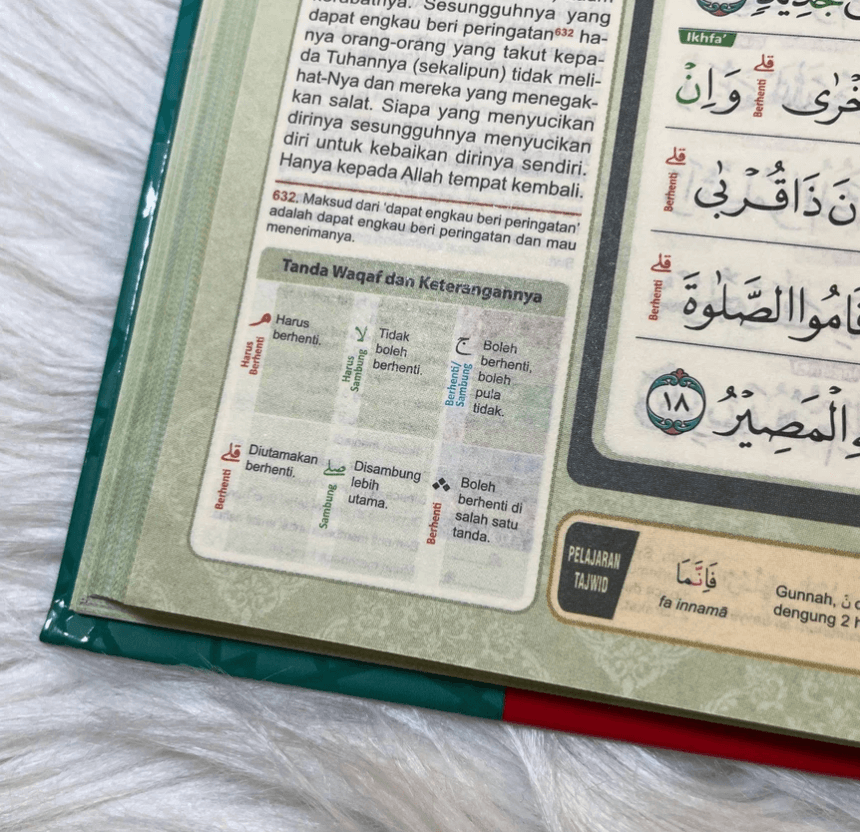 Sesungguhnya yang
dapat engkau beri peringatan⁶³² ha-
nya orang-orang yang takut kepa-
da Tuhannya (sekalipun) tidak meli-
hat-Nya dan mereka yang menegak-
kan salat. Siapa yang menyucikan
dirinya sesungguhnya menyucikan
diri untuk kebaikan dirinya sendiri.
Hanya kepada Allah tempat kembali.
632. Maksud dari 'dapat engkau beri peringatan'
adalah dapat engkau beri peringatan dan mau
menerimanya.
Tanda Waqaf dan Keterangannya
مـ
Harus Berhenti
Harus
berhenti.
لا
Harus Sambung
Tidak
boleh
berhenti.
ج
Berhenti/ Sambung
Boleh
berhenti,
boleh
pula
tidak.
قلى
Berhenti
Diutamakan
berhenti.
صلى
Sambung
Disambung
lebih
utama.
Berhenti
Boleh
berhenti di
salah satu
tanda.
Ikhfa'
خْرٰى ۗ وَاِنْ
Berhenti
نَ ذَا قُرْبٰى ۗ
Berhenti
قَامُوا الصَّلٰوةَ ۗ
Berhenti
الْمَصِيْرُ ١٨
PELAJARAN
TAJWID
فَاِنَّمَا
fa innamā
Gunnah, نّ
dengung 2